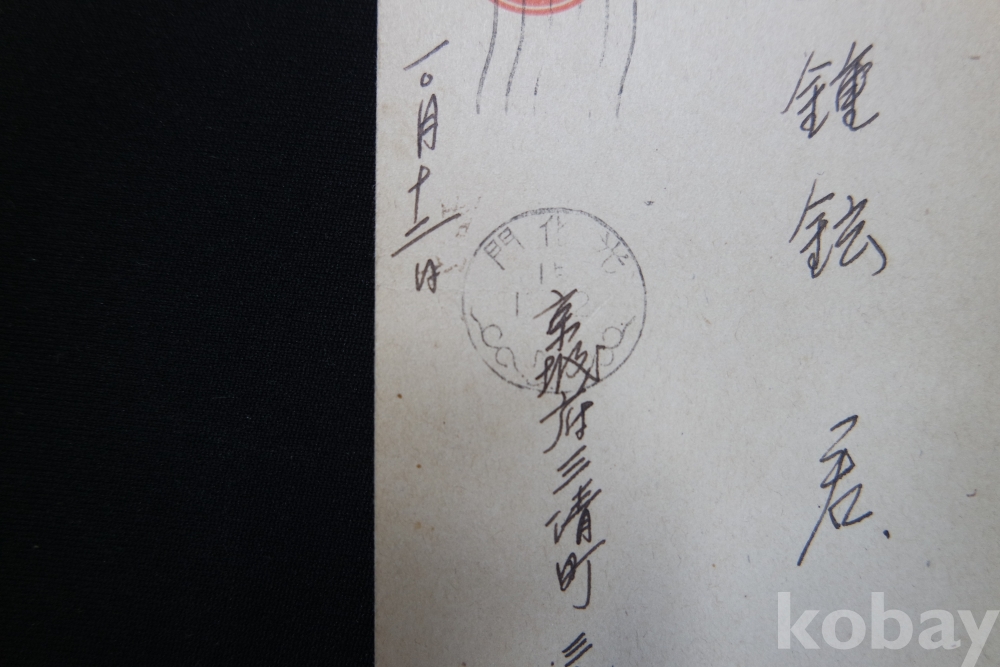 鍾鉉 君、
京城府三清町 三
一〇月十二日
光化門
15
kobay